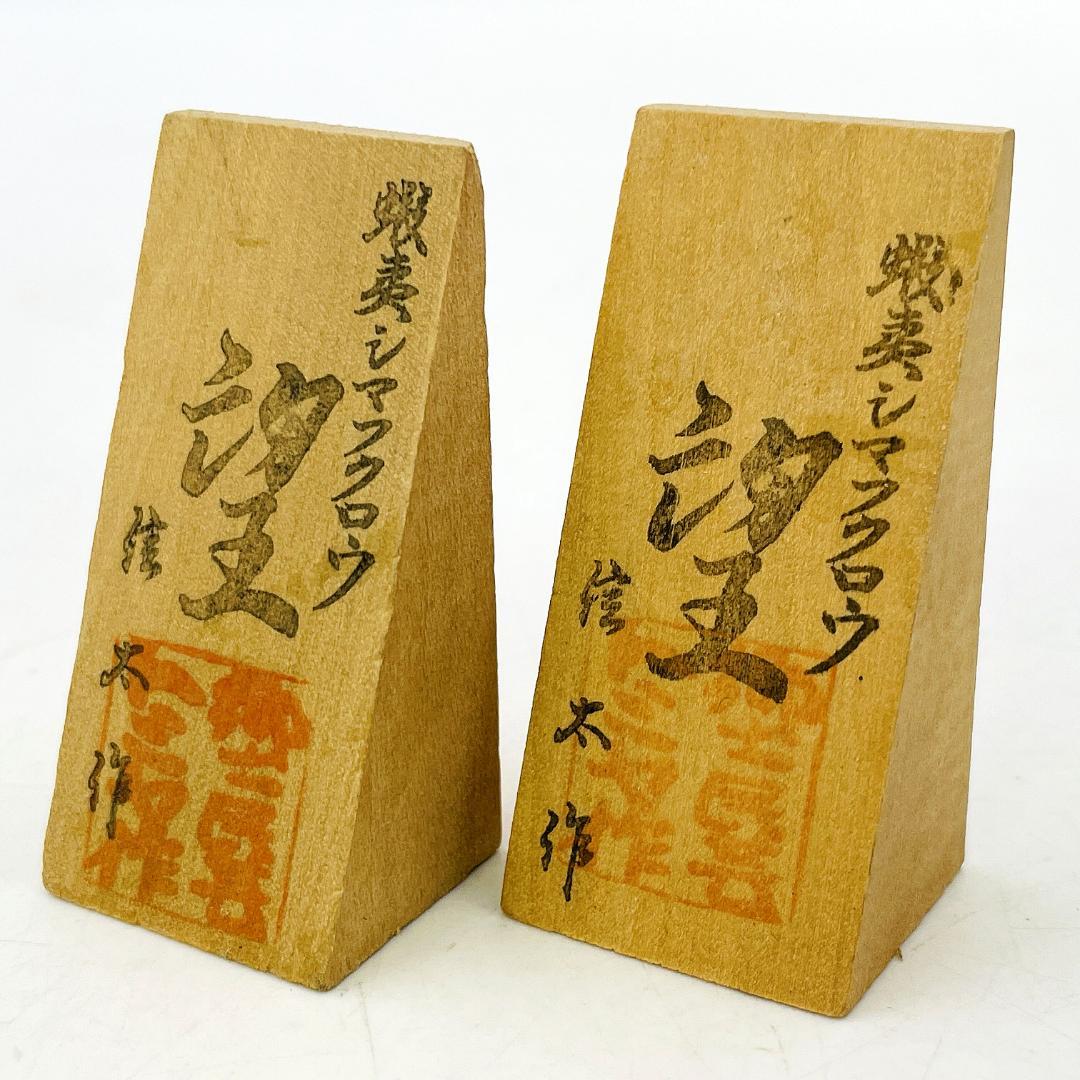 蝦夷シマフクロウ
望
信太作
蝦夷シマフクロウ
望
信太作